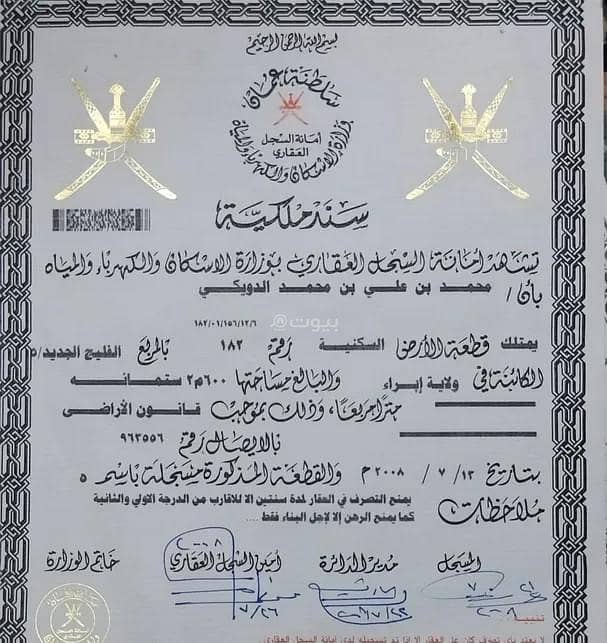 بسم الله الرحمن الرحيم
سلطنة عمان
وزارة الاسكان والكهرباء والمياه
أمانة السجل
العقاري
سند ملكية
تشهد أمانة السجل العقاري بوزارة الاسكان والكهرباء والمياه
بأن / محمد بن علي بن محمد الدويكي
بيوت
١٨٢/٠١/١٥٦/١٢/٦
يمتلك قطعة الأرض السكنية رقم ١٨٢ بالمربع الفليج الجديد/٥
الكائنة في ولاية إبراء والبالغ مساحتها ٦٠٠م٢ ستمائه
متراً مربعاً، وذلك بموجب قانون الأراضى
بالايصال رقم ٩٦٣٥٥٦
بتاريخ ١٣ / ٧ / ٢٠٠٨ م والقطعة المذكورة مسجلة باسم ه
ملاحظات يمنع التصرف في العقار لمدة سنتين الا للاقارب من الدرجة الاولي والثانية
كما يمنع الرهن إلا لإجل البناء فقط ....
المسجل مدير الدائرة أمين السجل العقاري خاتم الوزارة
٢٠٠٨
٧/٢٦
تنبيه